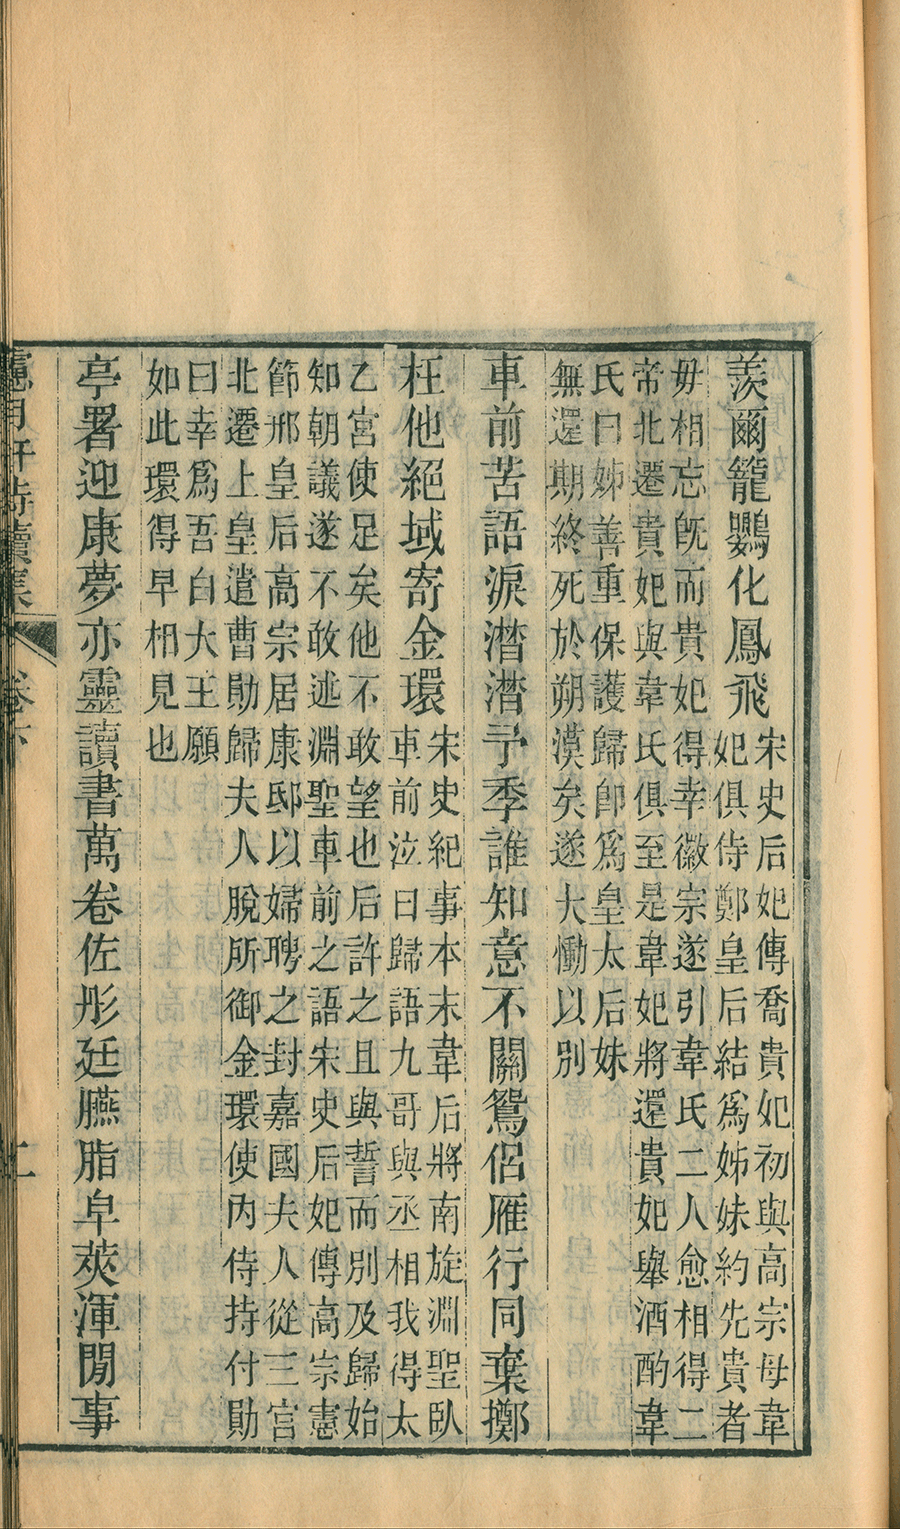 羨爾籠鸚化鳳飛
宋史后妃傳喬貴妃初與高宗母韋
妃俱侍鄭皇后結為姊妹約先貴者
毋相忘旣而貴妃得幸徽宗遂引韋氏二人愈相得二
帝北遷貴妃與韋氏俱至是韋妃將還貴妃舉酒酌韋
氏曰姊善重保護歸卽為皇太后妹
無還期終死於朔漠矣遂大慟以別
車前苦語淚潸潸予季誰知意不關鴛侶雁行同棄擲
枉他絕域寄金環
宋史紀事本末韋后將南旋淵聖臥
車前泣曰歸語九哥與丞相我得太
乙宮使足矣他不敢望也后許之且與誓而別及歸始
知朝議遂不敢述淵聖車前之語宋史后妃傳高宗憲
節邢皇后高宗居康邸以婦聘之封嘉國夫人從三宮
北遷上皇遣曹勛歸夫人脫所御金環使內侍持付勛
曰幸爲吾白大王願
如此環得早相見也
亭署迎康夢亦靈讀書萬卷佐彤廷臙脂皁莢渾閒事
卷六